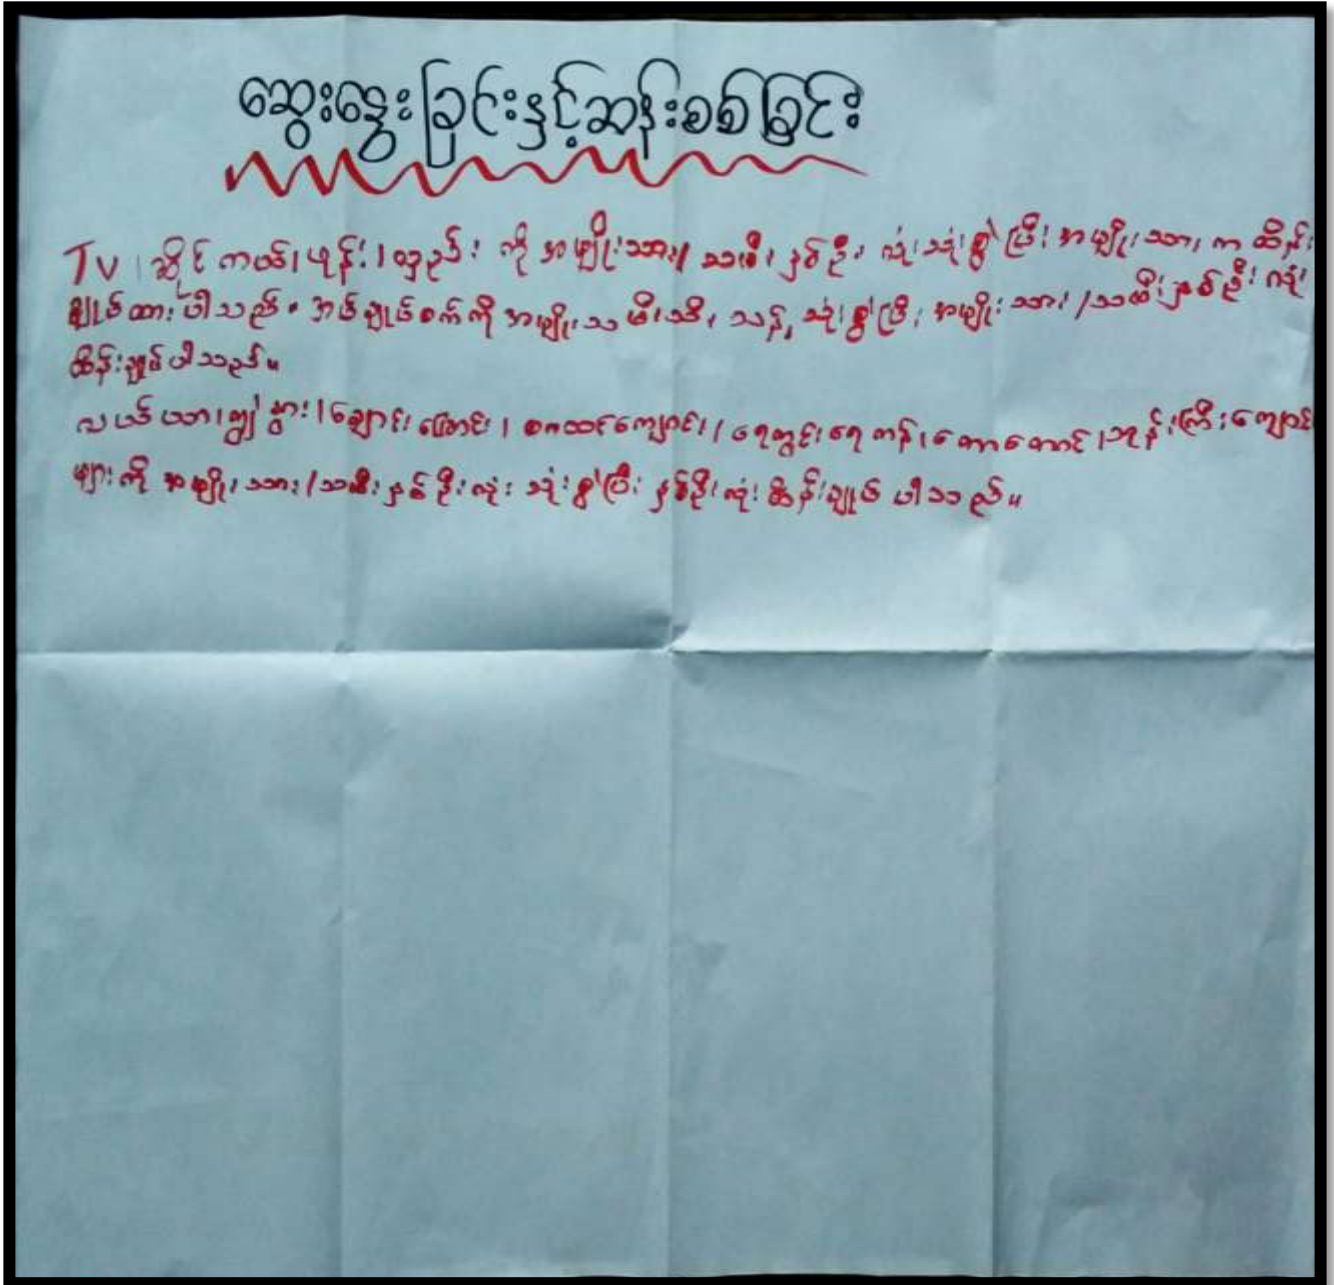 ဆွေးနွေးခြင်းနှင့်ဆန်းစစ်ခြင်း
TV ၊ ဆိုင်ကယ်၊ ဖုန်း၊ လှည်း ကို အမျိုးသား/ သမီး နှစ်ဦး လုံးသုံးစွဲပြီး အမျိုးသား က ထိန်း
ချုပ်ထားပါသည်။ အပ်ချုပ်စက်ကို အမျိုးသမီးသီး သန့် သုံးစွဲပြီး အမျိုးသား/သမီး နှစ်ဦး လုံး
ထိန်းချုပ်ပါသည်။
လယ်ယာ၊ ကျွဲနွား၊ ချောင်းမြောင်း၊ စာသင်ကျောင်း၊ ရေတွင်းရေကန်၊ တောတောင်၊ ဘုန်းကြီးကျောင်း
များကို အမျိုးသား/သမီး နှစ်ဦးလုံး သုံးစွဲပြီး နှစ်ဦးလုံး ထိန်းချုပ် ပါသည်။